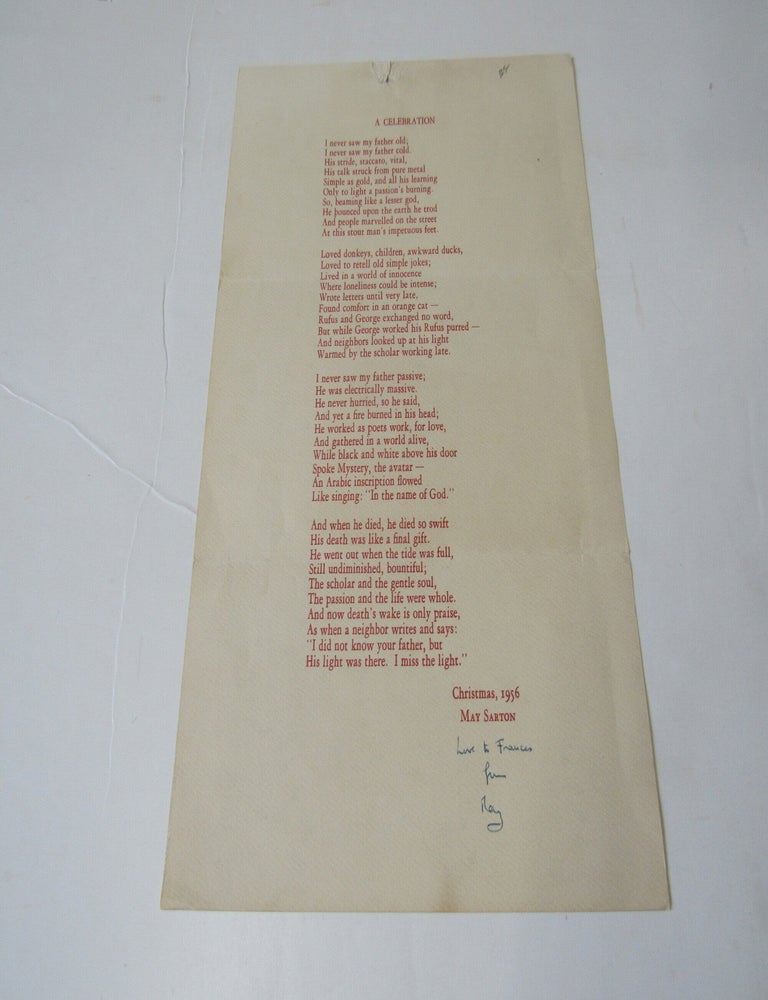 A CELEBRATION
I never saw my father old;
I never saw my father cold.
His stride, staccato, vital,
His talk struck from pure metal
Simple as gold, and all his learning
Only to light a passion's burning.
So, beaming like a lesser god,
He bounced upon the earth he trod
And people marvelled on the street
At this stout man's impetuous feet.
Loved donkeys, children, awkward ducks,
Loved to retell old simple jokes;
Lived in a world of innocence
Where loneliness could be intense;
Wrote letters until very late,
Found comfort in an orange cat —
Rufus and George exchanged no word,
But while George worked his Rufus purred —
And neighbors looked up at his light
Warmed by the scholar working late.
I never saw my father passive;
He was electrically massive.
He never hurried, so he said,
And yet a fire burned in his head;
He worked as poets work, for love,
And gathered in a world alive,
While black and white above his door
Spoke Mystery, the avatar —
An Arabic inscription flowed
Like singing: "In the name of God."
And when he died, he died so swift
His death was like a final gift.
He went out when the tide was full,
Still undiminished, bountiful;
The scholar and the gentle soul,
The passion and the life were whole.
And now death's wake is only praise,
As when a neighbor writes and says:
"I did not know your father, but
His light was there. I miss the light."
Christmas, 1956
May Sarton
Love to Frances
from
May